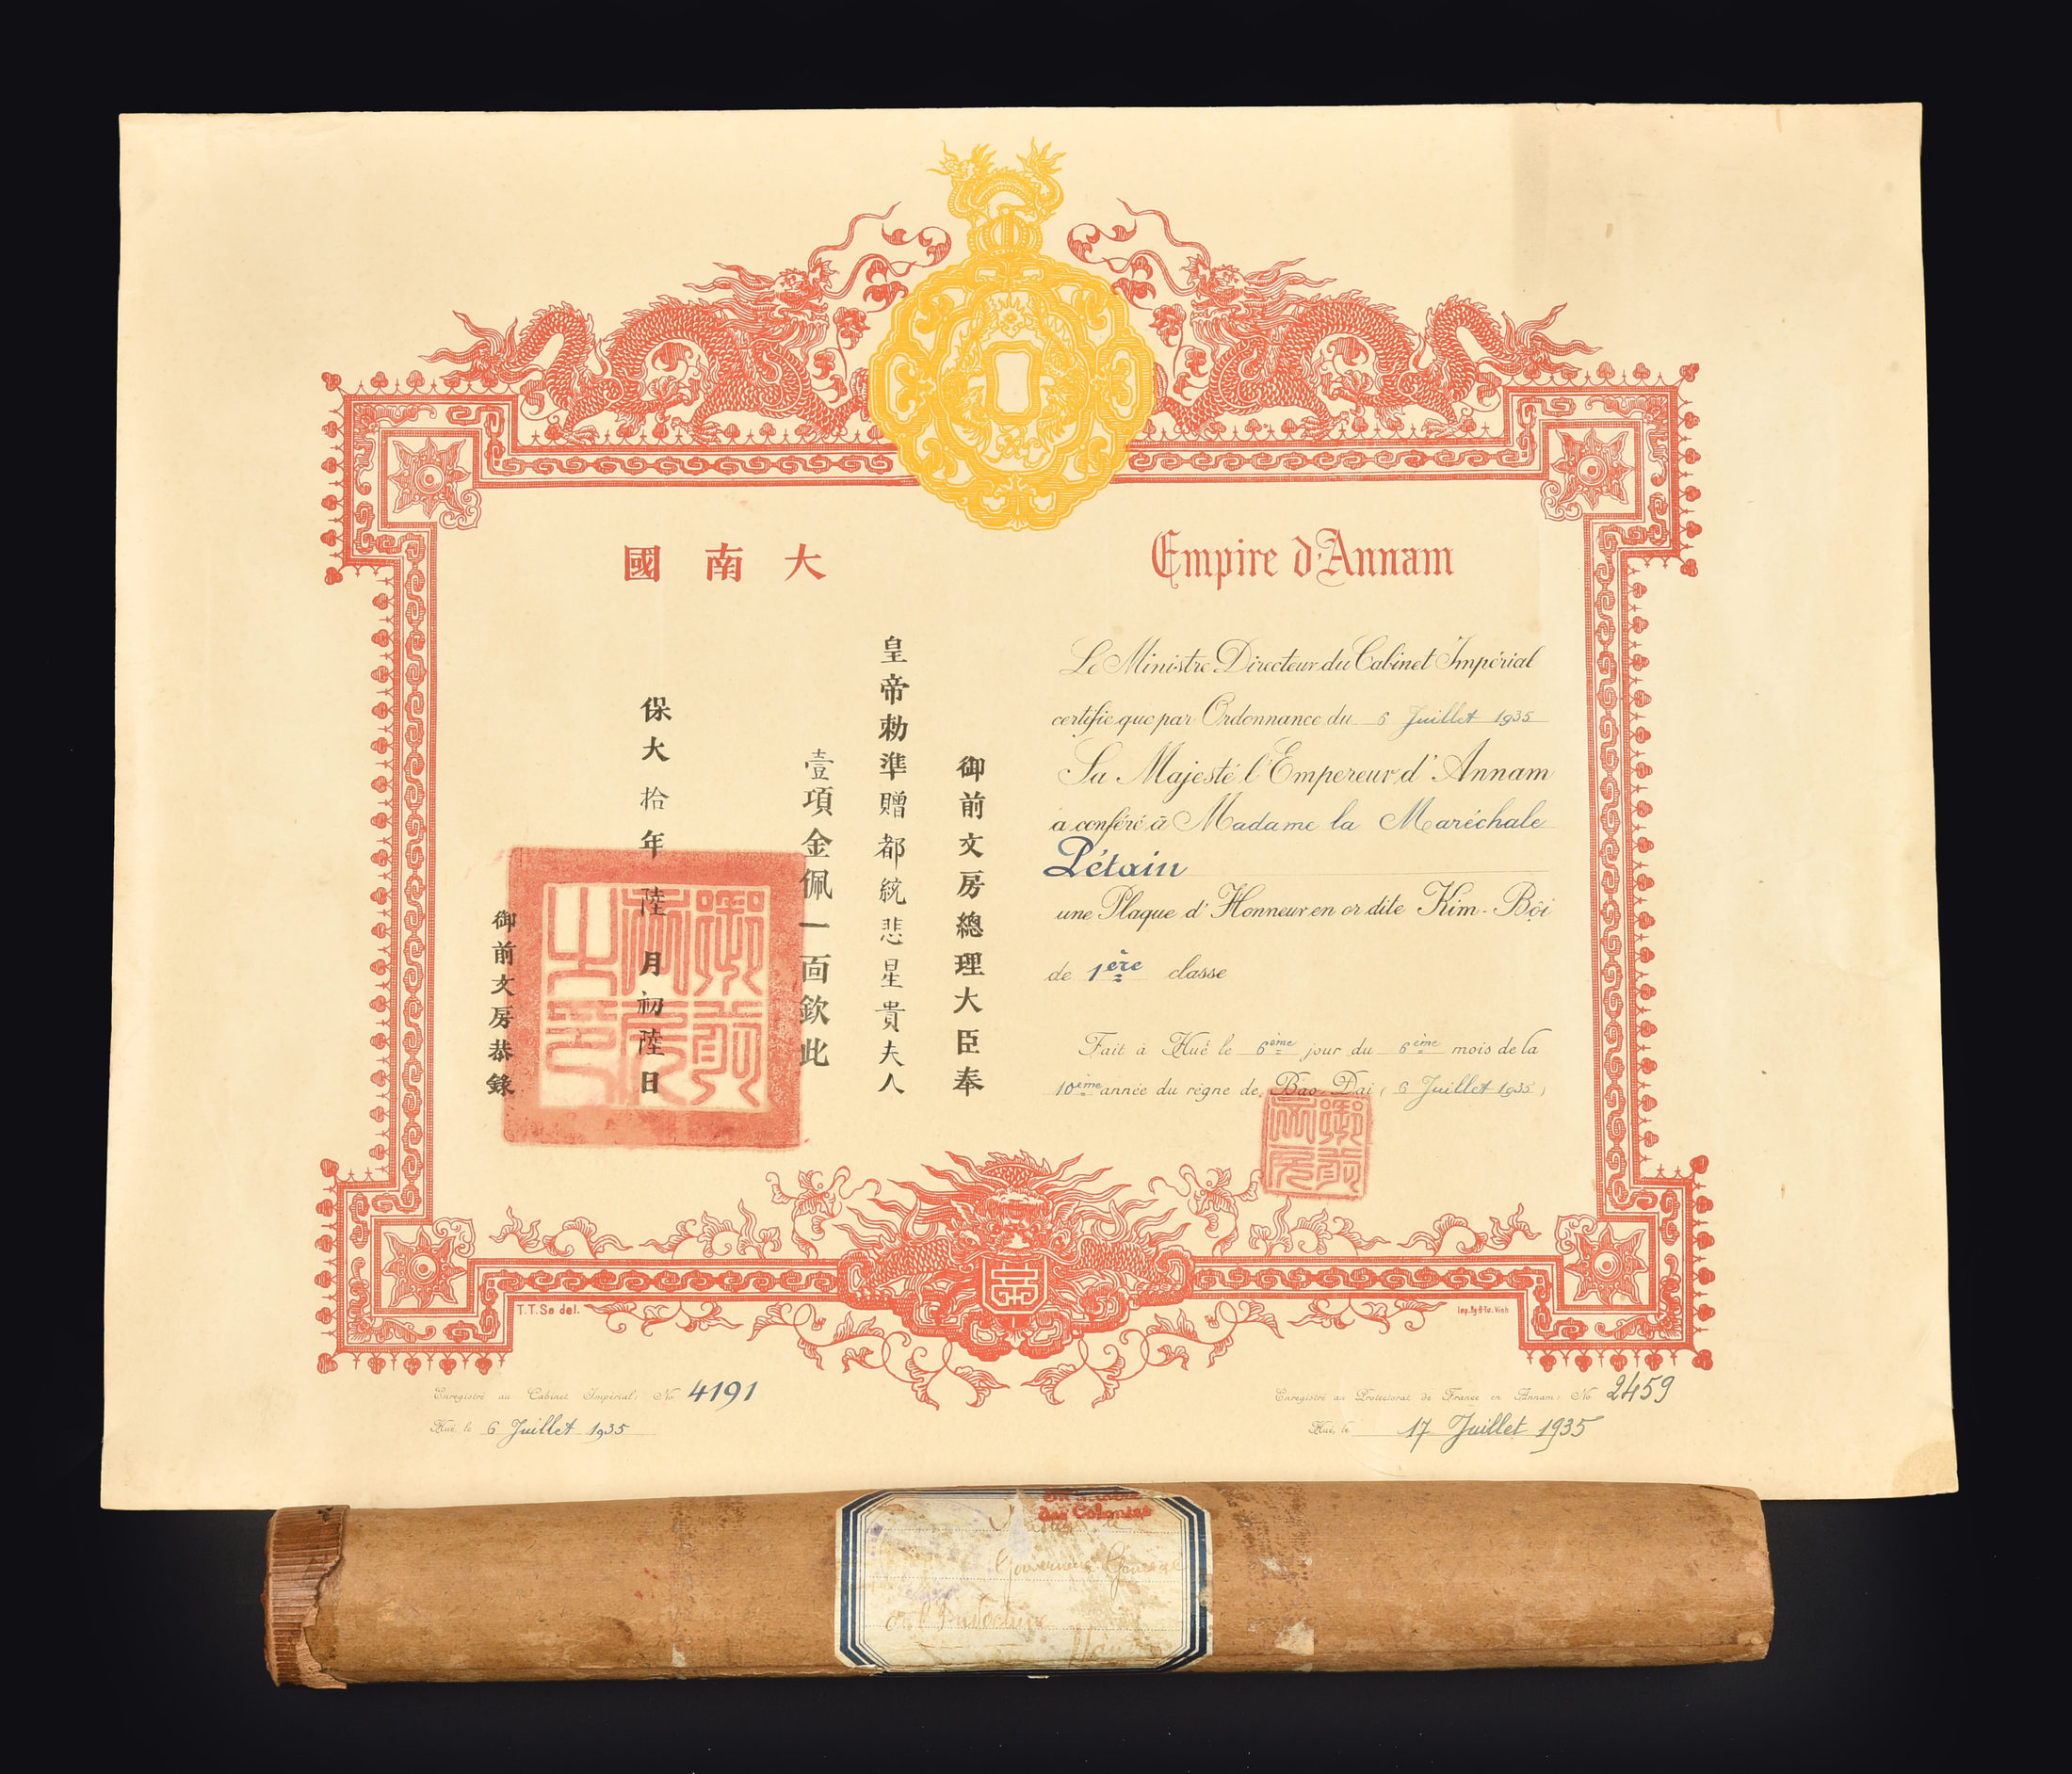 大南國
Empire d'Annam
御前文房總理大臣奉
皇帝勅準贈都統悲星貴夫人
壹項金佩一面欽此
保大拾年陸月初陸日
御前文房恭錄
御前文房之印
Le Ministre Directeur du Cabinet Impérial
certifie que par Ordonnance du 6 Juillet 1935
Sa Majesté l'Empereur d'Annam
a conféré à Madame la Maréchale
Pétain
une Plaque d'Honneur en or dite Kim-Bội
de 1ère classe
Fait à Hué le 6ème jour du 6ème mois de la
10ème année du règne de Bao-Dai (6 Juillet 1935)
御前文房
T.T.Sa del.
Enregistré au Cabinet Impérial, No 4191
Hué, le 6 Juillet 1935
Enregistré au Protectorat de France en Annam, No 2459
Hué, le 17 Juillet 1935
des Colonies
Gouverneur Général
de l'Indochine